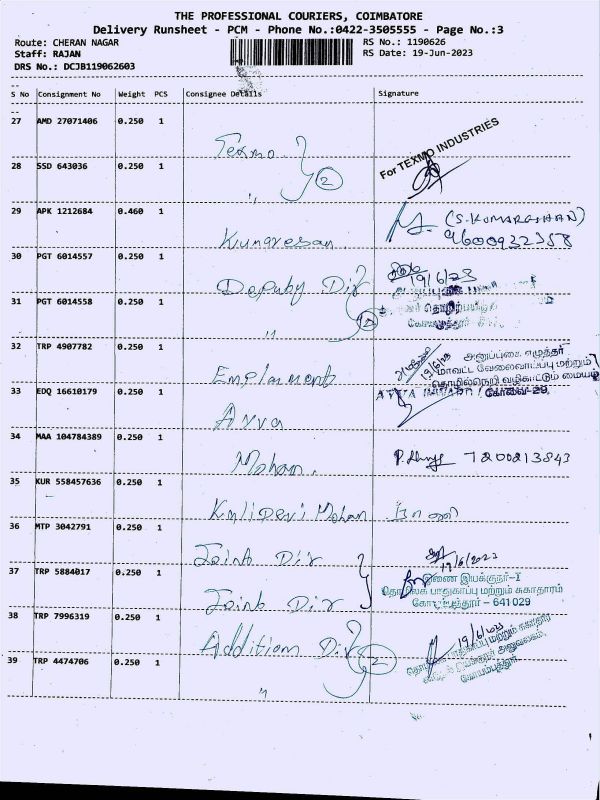 THE PROFESSIONAL COURIERS, COIMBATORE
Delivery Runsheet - PCM - Phone No.:0422-3505555 - Page No.:3
Route: CHERAN NAGAR RS No.: 1190626
Staff: RAJAN RS Date: 19-Jun-2023
DRS No.: DCJB119062603
S No Consignment No Weight PCS Consignee Details Signature
27 AMD 27071406 0.250 1
Texmo
For TEXMO INDUSTRIES
28 SSD 643036 0.250 1
" 2
29 APK 1212684 0.460 1
Kumaresan
(S.KUMARESHAN)
9600932358
30 PGT 6014557 0.250 1
Deputy Dir
19/6/23
31 PGT 6014558 0.250 1
" 2
32 TRP 4907782 0.250 1
19/6/23
அனுப்புகை எழுத்தர்
மாவட்ட வேலைவாய்ப்பு மற்றும்
தொழில்நெறி வழிகாட்டும் மையம்
கோவை-29.
33 EDQ 16610179 0.250 1
34 MAA 104784389 0.250 1
Mohan. 7200213843
35 KUR 558457636 0.250 1
Kalidevi Mohan
36 MTP 3042791 0.250 1
Joint Dir
19/6/2023
37 TRP 5884017 0.250 1
Joint Dir
இணை இயக்குநர்-I
தொழிலக பாதுகாப்பு மற்றும் சுகாதாரம்
கோயம்புத்தூர் - 641 029
38 TRP 7996319 0.250 1
Addition Dir 2
19/6/23
39 TRP 4474706 0.250 1
"